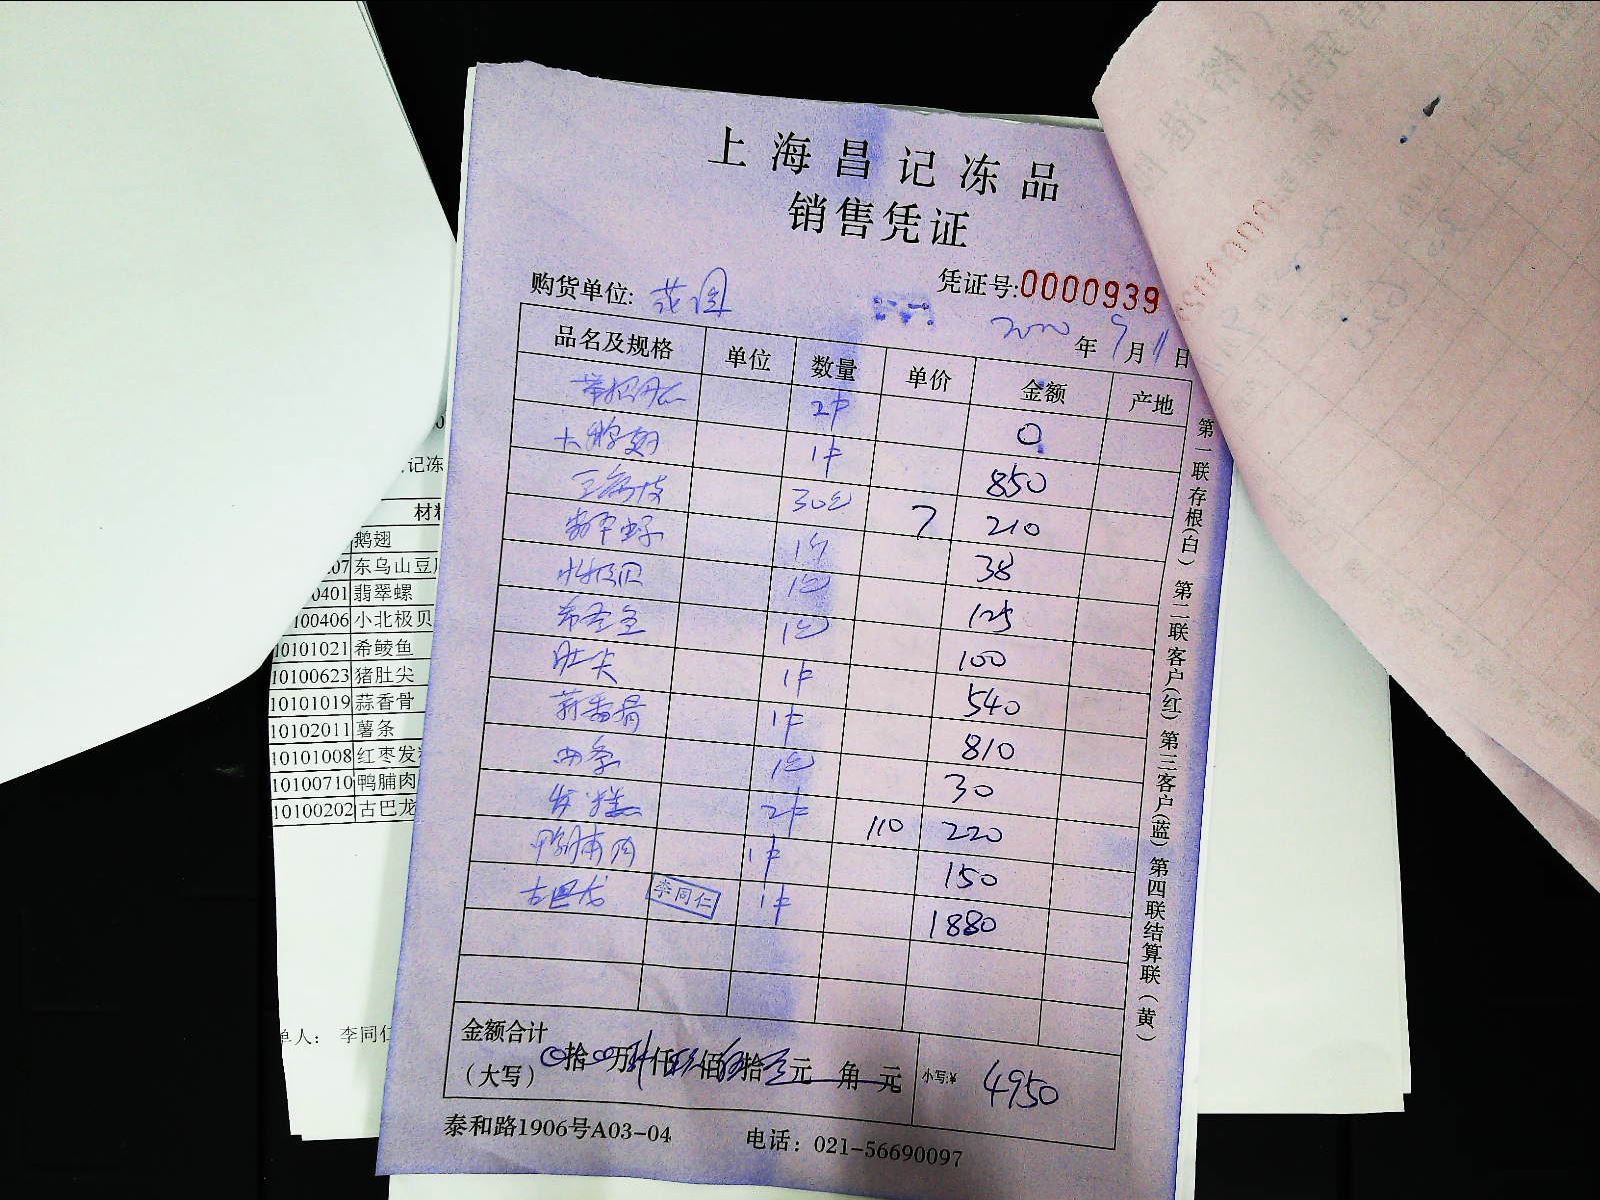 上海昌记冻品
销售凭证
凭证号:0000939
购货单位:
2020年9月11日
品名及规格 单位 数量 单价 金额 产地
2件 0
大鹅翅 1件 850
30包 7 210
38
北极贝 1包 125
1包 100
肚尖 1件 540
蒜香骨 1件 810
1包 30
发糕 2件 110 220
鸭脯肉 1件 150
古巴龙 李同仁 1件 1880
金额合计
(大写) 拾 万 仟 佰 拾 元 角 元 小写:¥ 4950
泰和路1906号A03-04 电话：021-56690097
第一联存根(白) 第二联客户(红) 第三客户(蓝) 第四联结算联(黄)
记冻
材料
鹅翅
07 东乌山豆
0401 翡翠螺
100406 小北极贝
10101021 希鲮鱼
10100623 猪肚尖
10101019 蒜香骨
10102011 薯条
10101008 红枣发
10100710 鸭脯肉
10100202 古巴龙
单人： 李同仁